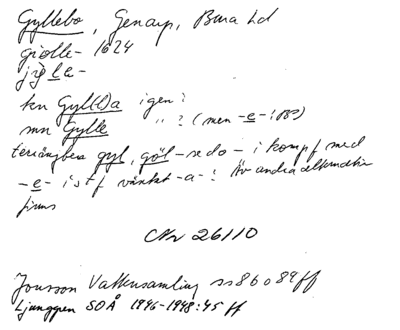 Gyllebo, Genarp, Bara hd
giolle- 1624
jy̆le-
kn Gyl(l)a igen?
mn Gylle " ? (men -e- i obs)
terrängbeta gyl, göl - redo - i kompf med
-e- i st f väntat -a- ? Äv andra alternativ
finns
CNr 26110
Jonsson Vattensamling ss 86 o 89 ff
Ljunggren SOÅ 1946-1948:45 ff